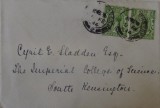 Cyril E. Sladden Esq.
The Imperial College of Science
South Kensington.